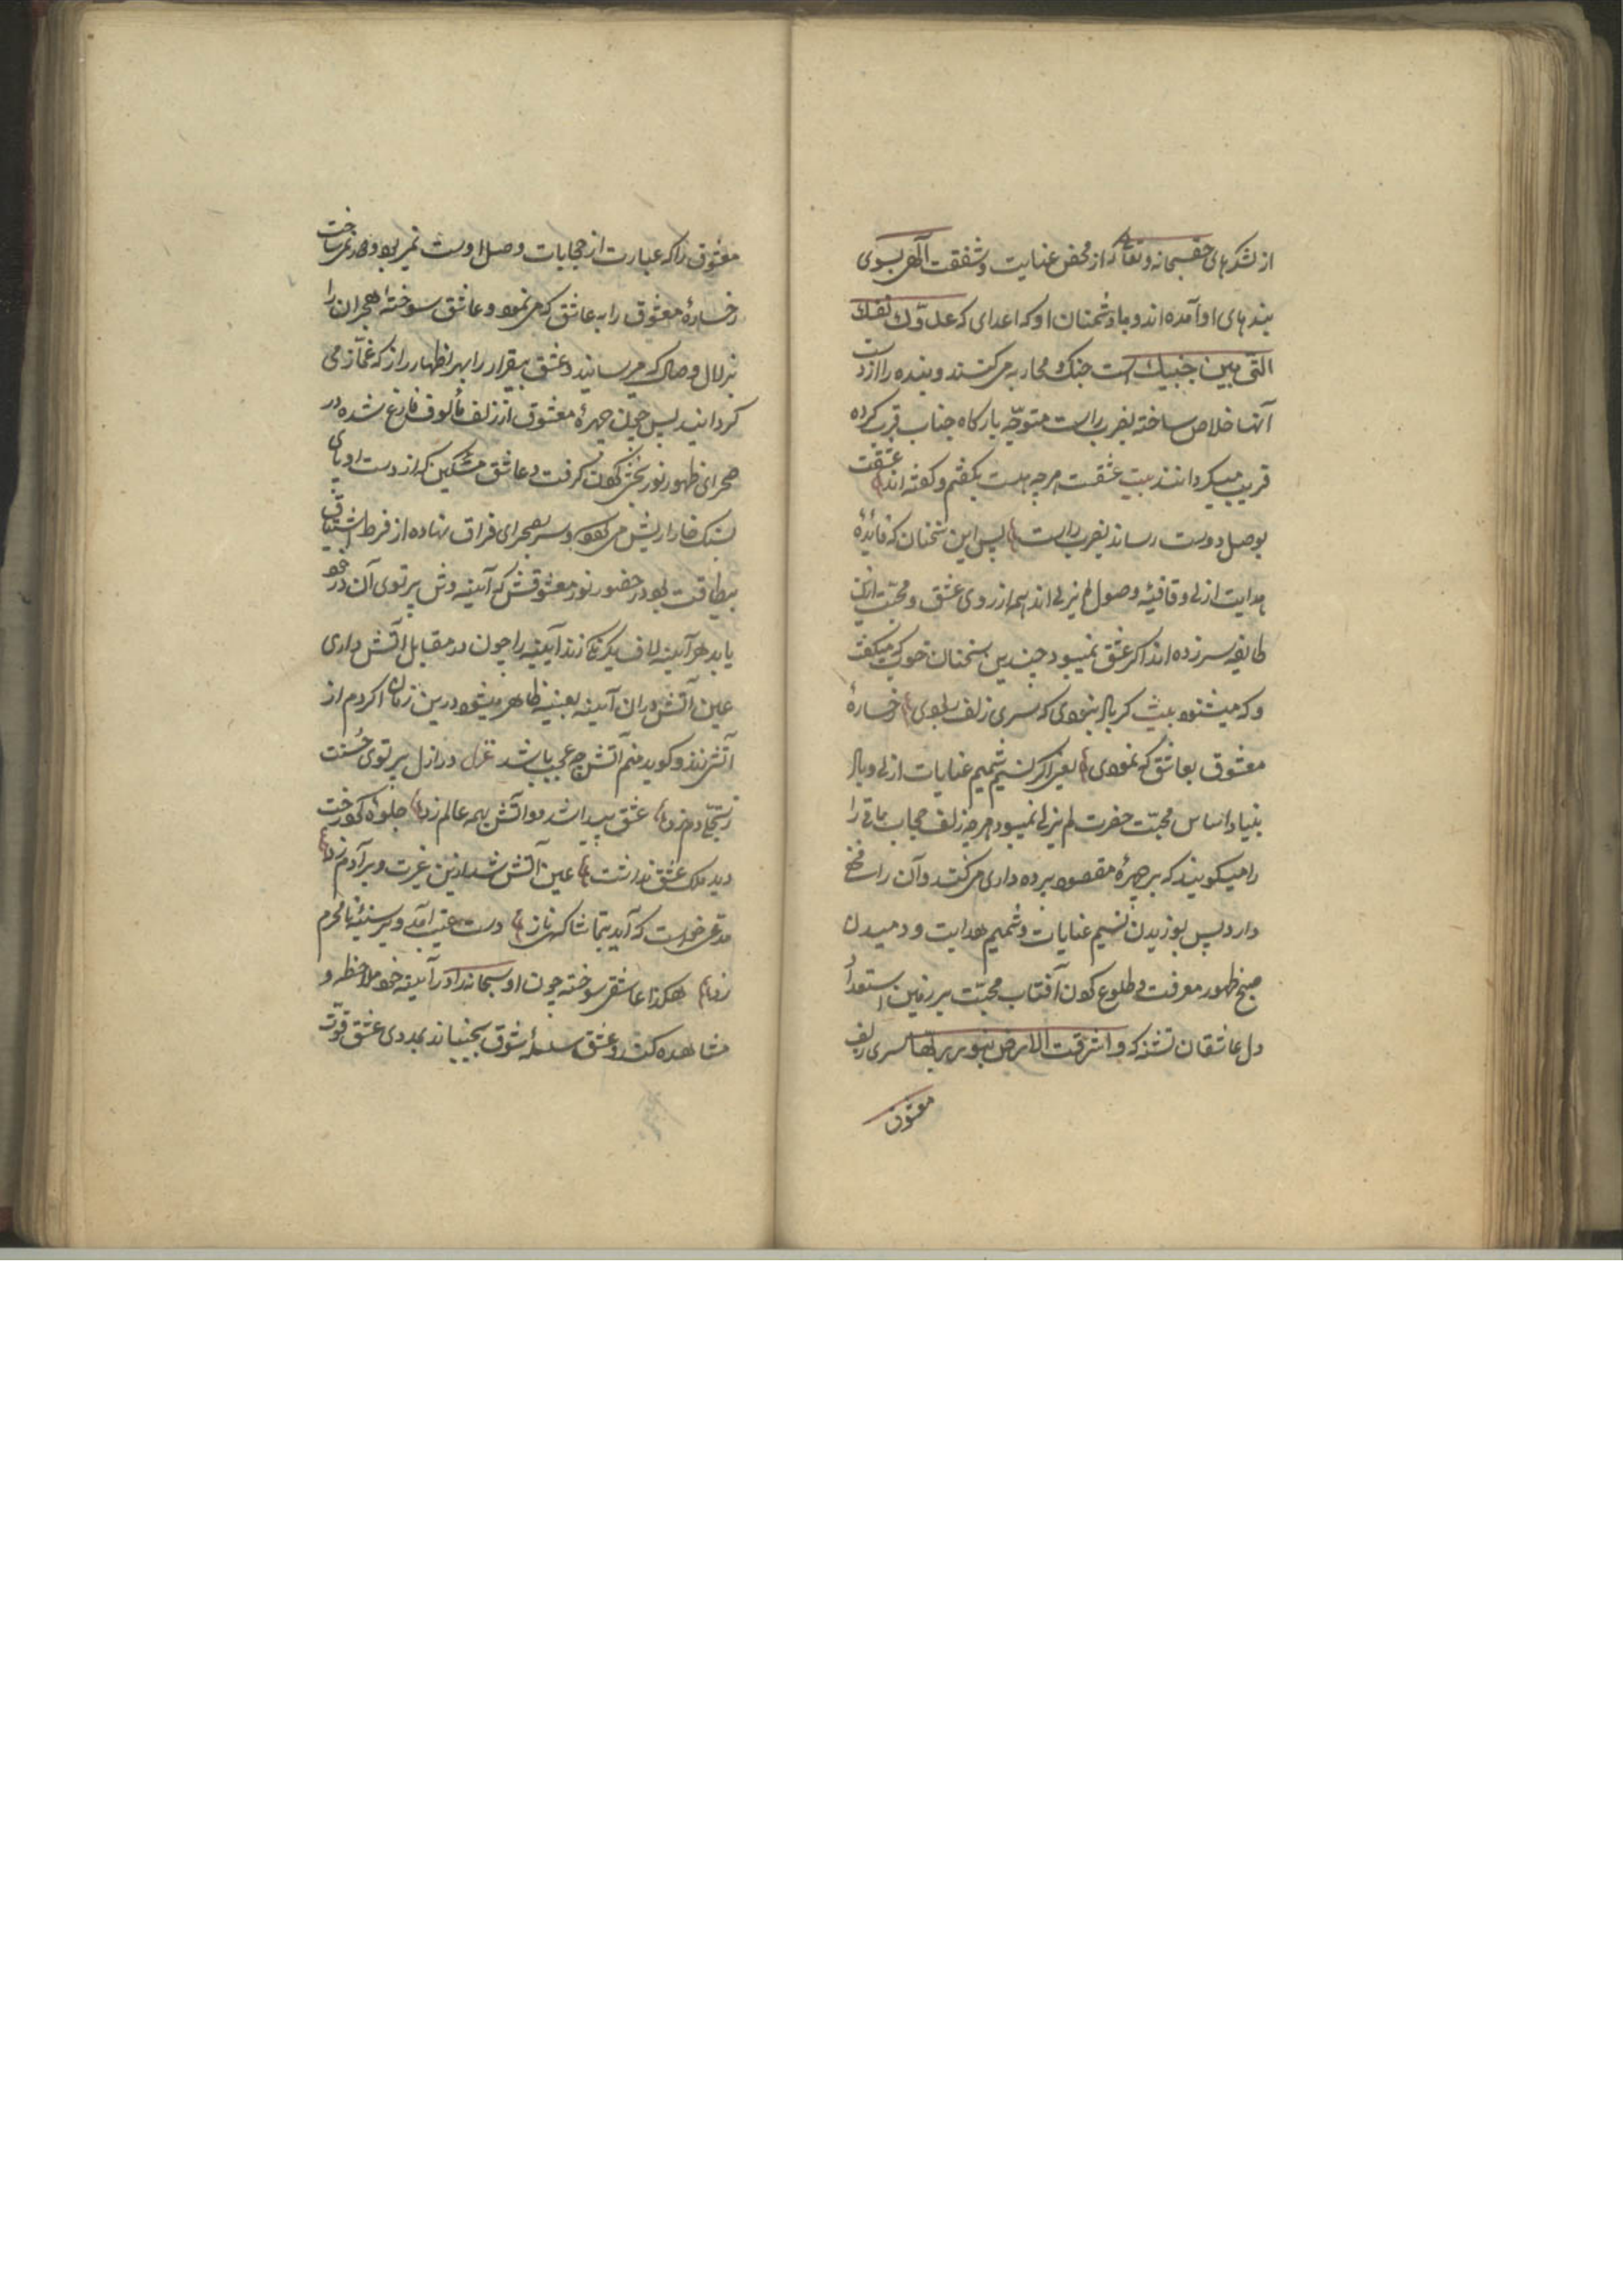 از لشکرهای حق سبحانه و تعالی که از محض عنایت و شفقت الٓهی بسوی
بندهای او آمده اند و با دشمنان او که اعدای که عدوّك نفسك
التی بین جنبیك است جنك و محاربه می کنند و بنده را از دست
آنها خلاص ساخته بضرب راست متوجّه بارکاه جناب قرب کرده
قریب میکردانند بیت عشقت هرچه هست بکفتیم و کفته اند عشقت
بوصل دوست رساند بضرب راست پس این سخنان که فایدهٔ
هدایت ازلی و قافیهٔ وصول لم یزلی اند همه از روی عشق و محبّت ازین
طایفه سر زده اند اکر عشق نمیبود چندین سخنان خوب که میکفت
و که میشنود بیت کر باد نبودی که سری زلف ربودی رخسارهٔ
معشوق بعاشق که نمودی یعنی اکر نسیم شمیم عنایات ازلی و باد
بنیاد اساس محبّت حضرت لم یزلی نمیبود هرچه زلف حجاب باقی را
را میکویند که بر چهرهٔ مقصود پرده داری می کنند و آن را
دارد پس بوزیدن نسیم عنایات و شمیم هدایت و دمیدن
صبح ظهور معرفت و طلوع کردن آفتاب محبّت بر زمین استعداد
دل عاشقان نشد که و اشرقت الارض بنور ربها سری زلف
معشوق
معشوق را که عبارت از حجابات وصل اوست نمی ربود و دور نمی ساخت
رخسارهٔ معشوق را به عاشق که می نمود و عاشق سوختهٔ هجران را
بزلال وصال که می رسانید و عشق بیقرار را بهر اظهار راز که غمّاز می
کردانید پس چون چهرهٔ معشوق از زلف مألوف فارغ شده در
صحرای ظهور نور بخشی کردن کرفت و عاشق مسکین که از دست او پای
بسنك خارا ریش می کرد و سر بصحرای فراق نهاده از فرط اشتیاق
بیطاقت بود در حضور نور معشوقش که آیینه وش پرتوی آن در خود
یابد هر آیینه لاف یکرنگی زند آیینه را چون در مقابل آتش داری
عین آتش در آن آیینه بعینه ظاهر میشود درین زمان اکر دم از
آتش زند و کوید منم آتش چه عجب باشد غزل در ازل پرتوی حُسنت
ز تجلّی دم زد عشق پیدا شد و آتش بهمه عالم زد جلوهٔ کرد رخت
دید ملك عشق نداشت عین آتش شد ازین غیرت و بر آدم زد
مدّعی خواست که آید بتماشاکه راز دست غیب آمد و بر سینهٔ نامحرم
زد هکذا عاشقی سوخته چون او سبحانه را در آیینهٔ خود ملاحظه و
مشاهده کند و عشق سلسلهٔ شوق بجنباند بمددی عشق قوّت